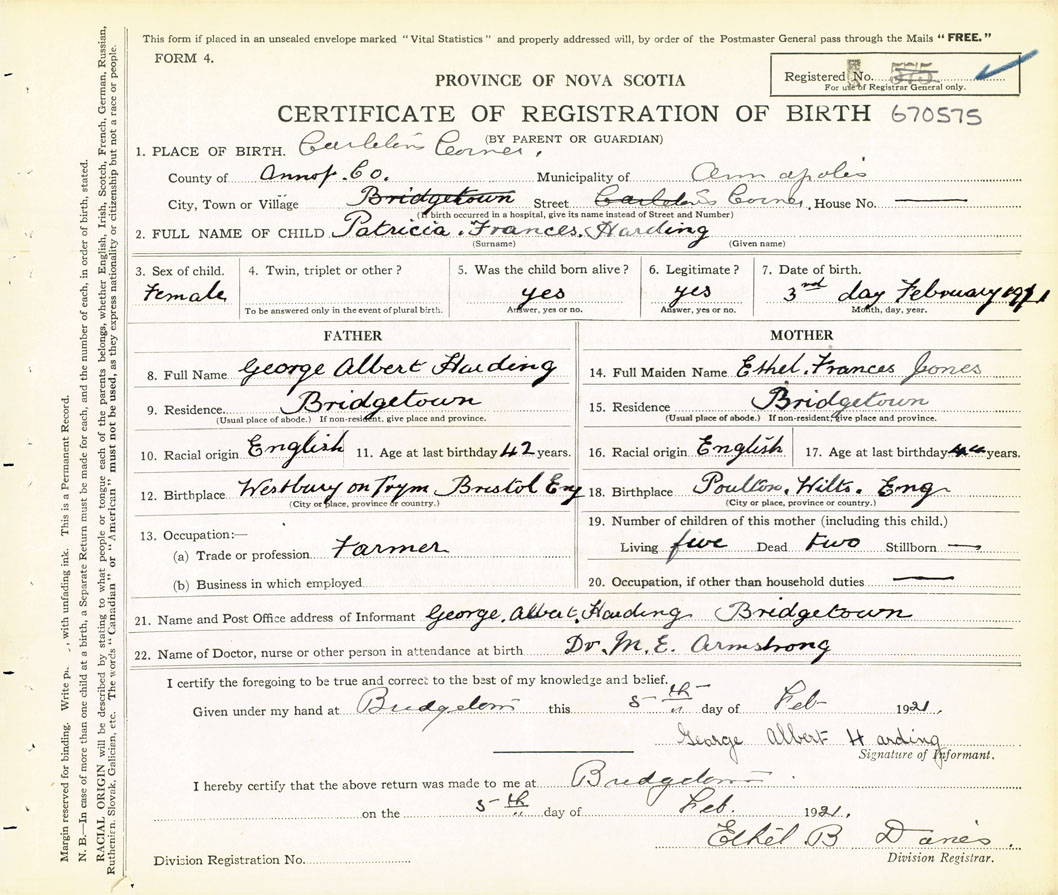 This form if placed in an unsealed envelope marked "Vital Statistics" and properly addressed will, by order of the Postmaster General pass through the Mails "FREE."
FORM 4.
PROVINCE OF NOVA SCOTIA
Registered No. 575
For use of Registrar General only.
CERTIFICATE OF REGISTRATION OF BIRTH 670575
(BY PARENT OR GUARDIAN)
1. PLACE OF BIRTH. Carleton Corner.
County of Annap. Co. Municipality of Annapolis
City, Town or Village Bridgetown Street Carleton's Corner, House No. —
(If birth occurred in a hospital, give its name instead of Street and Number)
2. FULL NAME OF CHILD Patricia. Frances. Harding
(Surname) (Given name)
3. Sex of child. 4. Twin, triplet or other? 5. Was the child born alive? 6. Legitimate? 7. Date of birth.
Female yes yes 3rd day February 1921
To be answered only in the event of plural birth. Answer, yes or no. Answer, yes or no. Month, day, year.
FATHER MOTHER
8. Full Name George Albert Harding 14. Full Maiden Name Ethel. Frances Jones
9. Residence. Bridgetown 15. Residence Bridgetown
(Usual place of abode.) If non-resident, give place and province. (Usual place of abode.) If non-resident, give place and province.
10. Racial origin English 11. Age at last birthday 42 years. 16. Racial origin English 17. Age at last birthday years.
12. Birthplace Westbury on Trym Bristol Eng 18. Birthplace Poulton. Wilts. Eng
(City or place, province or country.) (City or place, province or country.)
13. Occupation:— 19. Number of children of this mother (including this child.)
(a) Trade or profession Farmer Living five Dead two Stillborn —
(b) Business in which employed 20. Occupation, if other than household duties —
21. Name and Post Office address of Informant George. Albert. Harding Bridgetown
22. Name of Doctor, nurse or other person in attendance at birth Dr. M. E. Armstrong
I certify the foregoing to be true and correct to the best of my knowledge and belief.
Given under my hand at Bridgetown this 5th day of Feb 1921.
George Albert Harding
Signature of Informant.
I hereby certify that the above return was made to me at Bridgetown
on the 5th day of Feb. 1921.
Ethel B Davies
Division Registrar.
Division Registration No.
Margin reserved for binding. Write with unfading ink. This is a Permanent Record.
N. B.—In case of more than one child at a birth, a Separate Return must be made for each, and the number of each, in order of birth, stated.
RACIAL ORIGIN will be described by stating to what people or tongue each of the parents belongs, whether English, Irish, Scotch, French, German, Russian,
Ruthenian, Slovak, Galician, etc. The words "Canadian" or "American" must not be used, as they express nationality or citizenship but not a race or people.